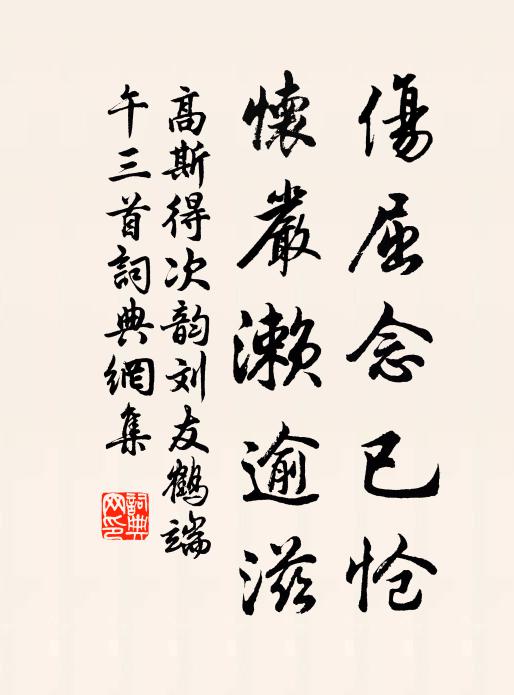 傷屈念已怆
懷嚴濑逾滋
高斯得次韵刘友鶴端
午三首詞典網集
詞典网印